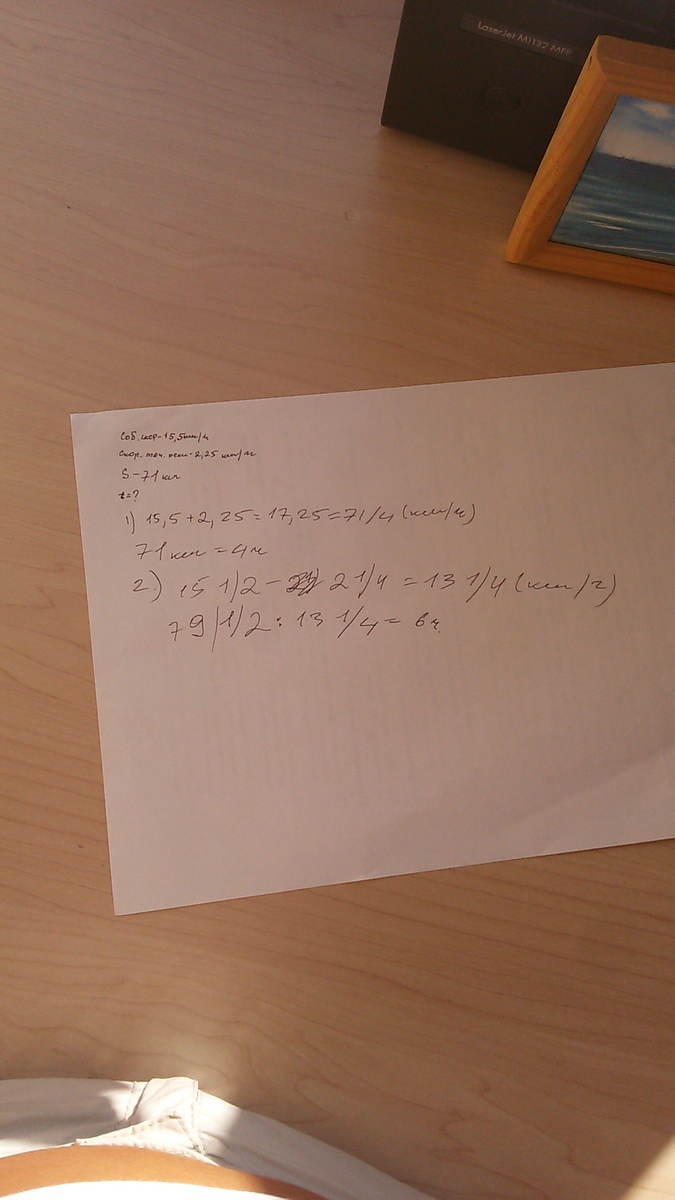 LaserJet M1132 MFP
Соб. скор-15,5км/ч
Скор. теч. реки-2,25 км/ч
S-71км
t=?
1) 15,5+2,25=17,25=71/4 (км/ч)
71км=4ч
2) 15 1/2 - 2 1/4 = 13 1/4 (км/ч)
79 1/2 : 13 1/4 = 6ч.